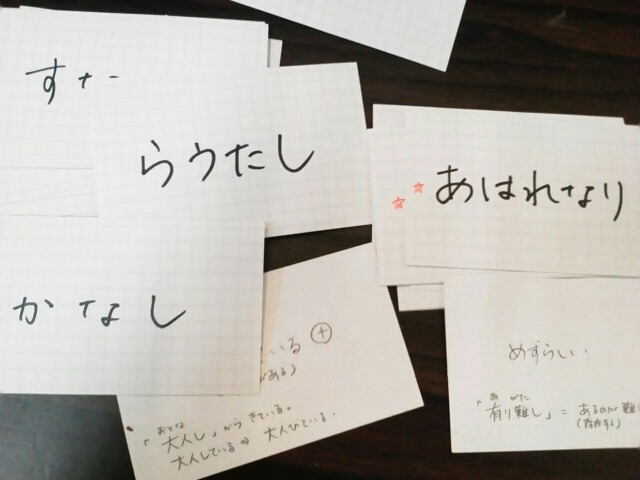 す
らうたし
☆☆ あはれなり
かなし
いる ⊕
がある)
おとな
「大人し」からきている。
大人している⇒大人びている.
めずらしい.
あ がた
「有り難し」= あるのが難
(存在する)